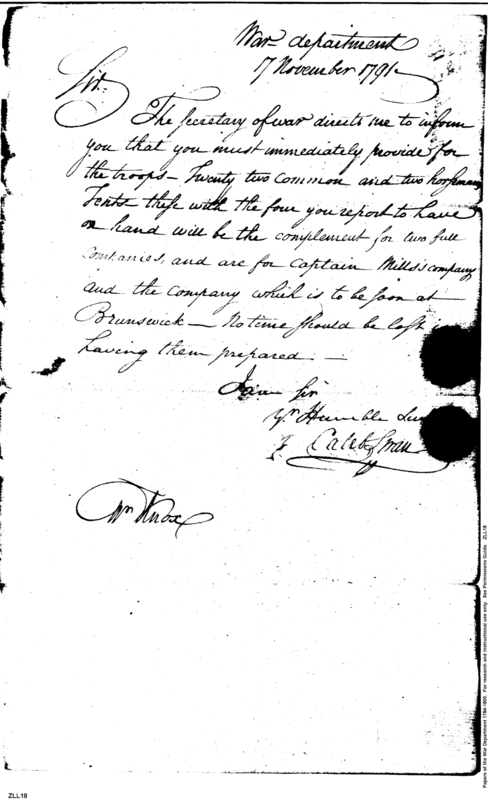 War department
17 November 1791
Sir.
The Secretary of war directs me to inform
you that you must immediately provide for
the troops – Twenty two common and two horsemans
Tents these with the four you report to have
on hand will be the complement for two full
Companies, and are for Captain Mills's company
and the company which is to be soon at
Brunswick – No time should be lost
having them prepared. –
I am Sir
Yr. Humble
Caleb Swan
Mr Knox
Papers of the War Department 1784-1800. For research and instructional use only. See Permissions Guide. ZLL18
ZLL18